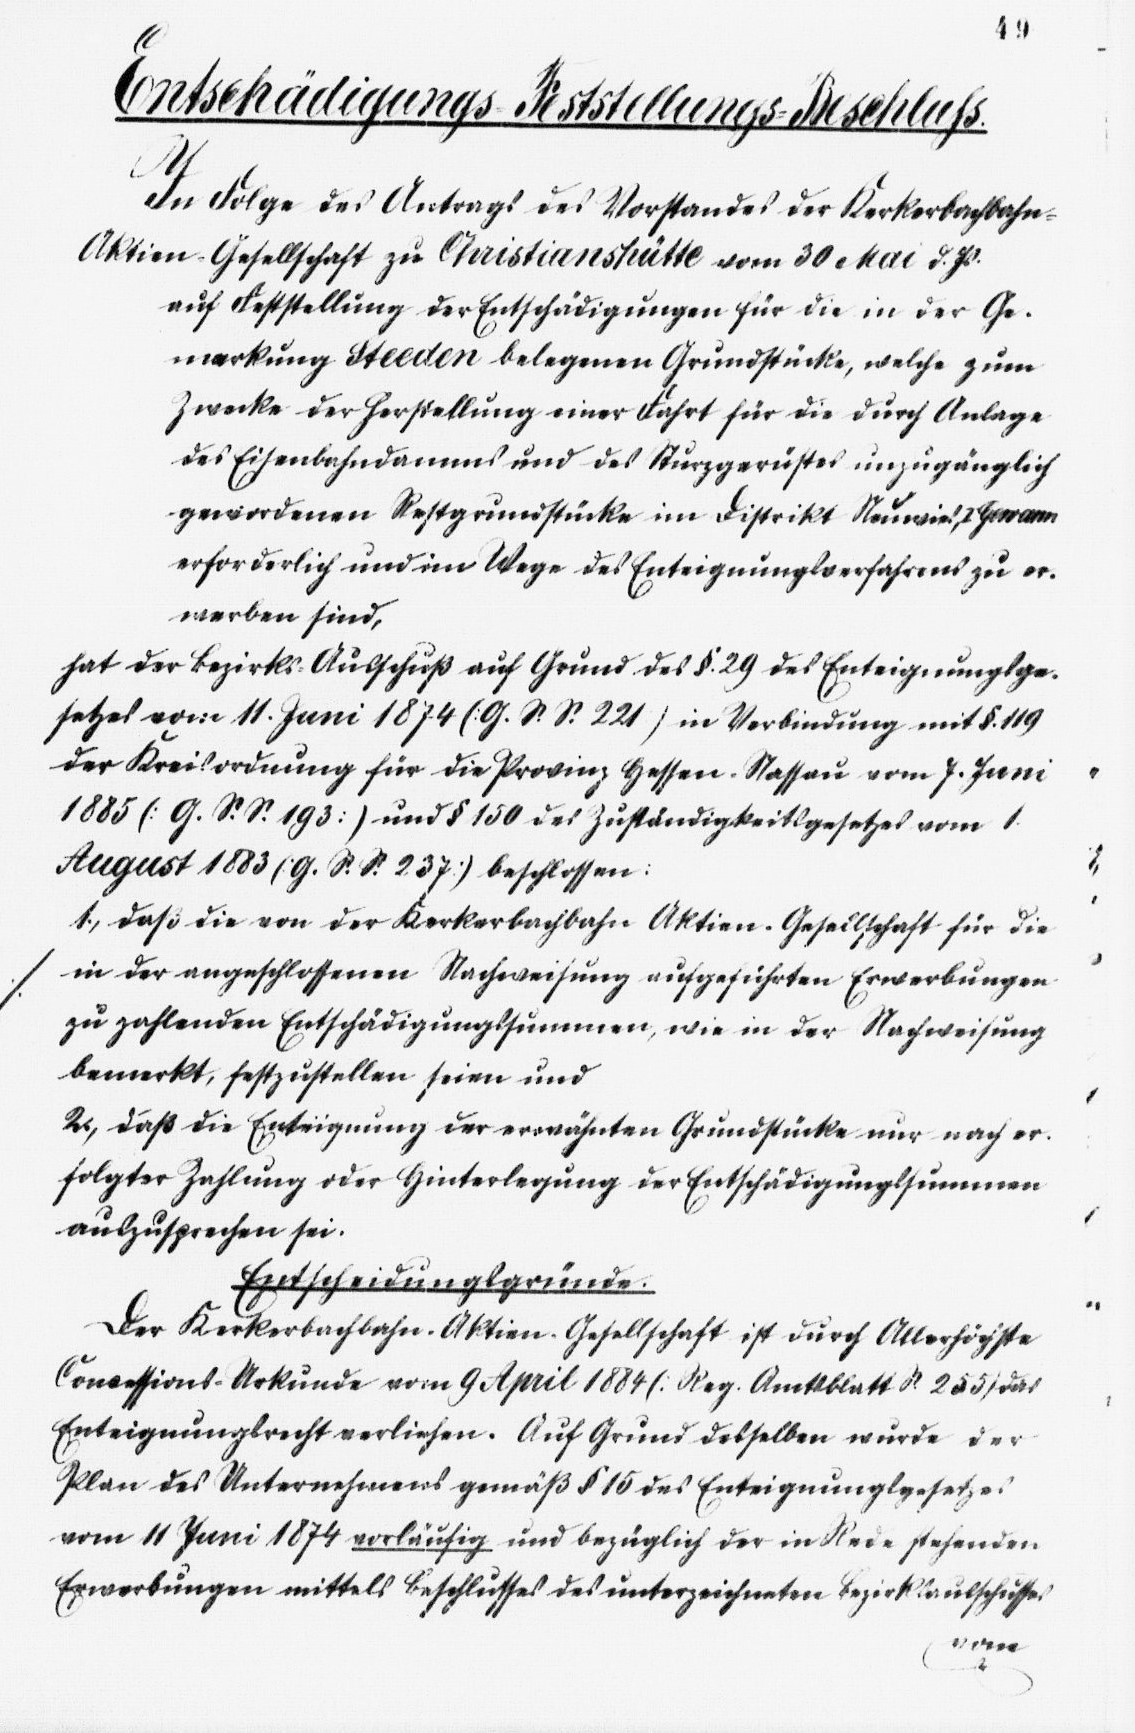 49
Entschädigungs-Feststellungs-Beschluß.
In Folge des Antrags des Vorstandes der Kerkerbachbahn-
Aktien-Gesellschaft zu Christianshütte vom 30 Mai d. Js.
auf Feststellung der Entschädigungen für die in der Ge-
markung Steeden belegenen Grundstücke, welche zum
Zwecke der Herstellung einer Fahrt für die durch Anlage
des Eisenbahndamms und des Sturzgerüstes unzugänglich
gewordenen Restgrundstücke im Distrikt Neuwies, 2 Gewann
erforderlich und im Wege des Enteignungsverfahrens zu er-
werben sind,
hat der Bezirks-Ausschuß auf Grund des §. 29 des Enteignungsge-
setzes vom 11. Juni 1874 (: G. S. S. 221 ) in Verbindung mit §. 119
der Kreisordnung für die Provinz Hessen-Nassau vom 7. Juni
1885 (: G. S. S. 193 :) und § 150 des Zuständigkeitsgesetzes vom 1.
August 1883 (: G. S. S. 237 :) beschlossen:
1., daß die von der Kerkerbachbahn Aktien-Gesellschaft für die
in der angeschlossenen Nachweisung aufgeführten Erwerbungen
zu zahlenden Entschädigungssummen, wie in der Nachweisung
bemerkt, festzustellen seien und
2., daß die Enteignung der erwähnten Grundstücke nur nach er-
folgter Zahlung oder Hinterlegung der Entschädigungssummen
auszusprechen sei.
Entscheidungsgründe.
Der Kerkerbachbahn-Aktien-Gesellschaft ist durch Allerhöchste
Concessions-Urkunde vom 9 April 1884 (: Reg. Amtsblatt S. 255) das
Enteignungsrecht verliehen. Auf Grund desselben wurde der
Plan des Unternehmens gemäß § 15 des Enteignungsgesetzes
vom 11 Juni 1874 vorläufig und bezüglich der in Rede stehenden
Erwerbungen mittels Beschlusses des unterzeichneten Bezirksausschusses
vom